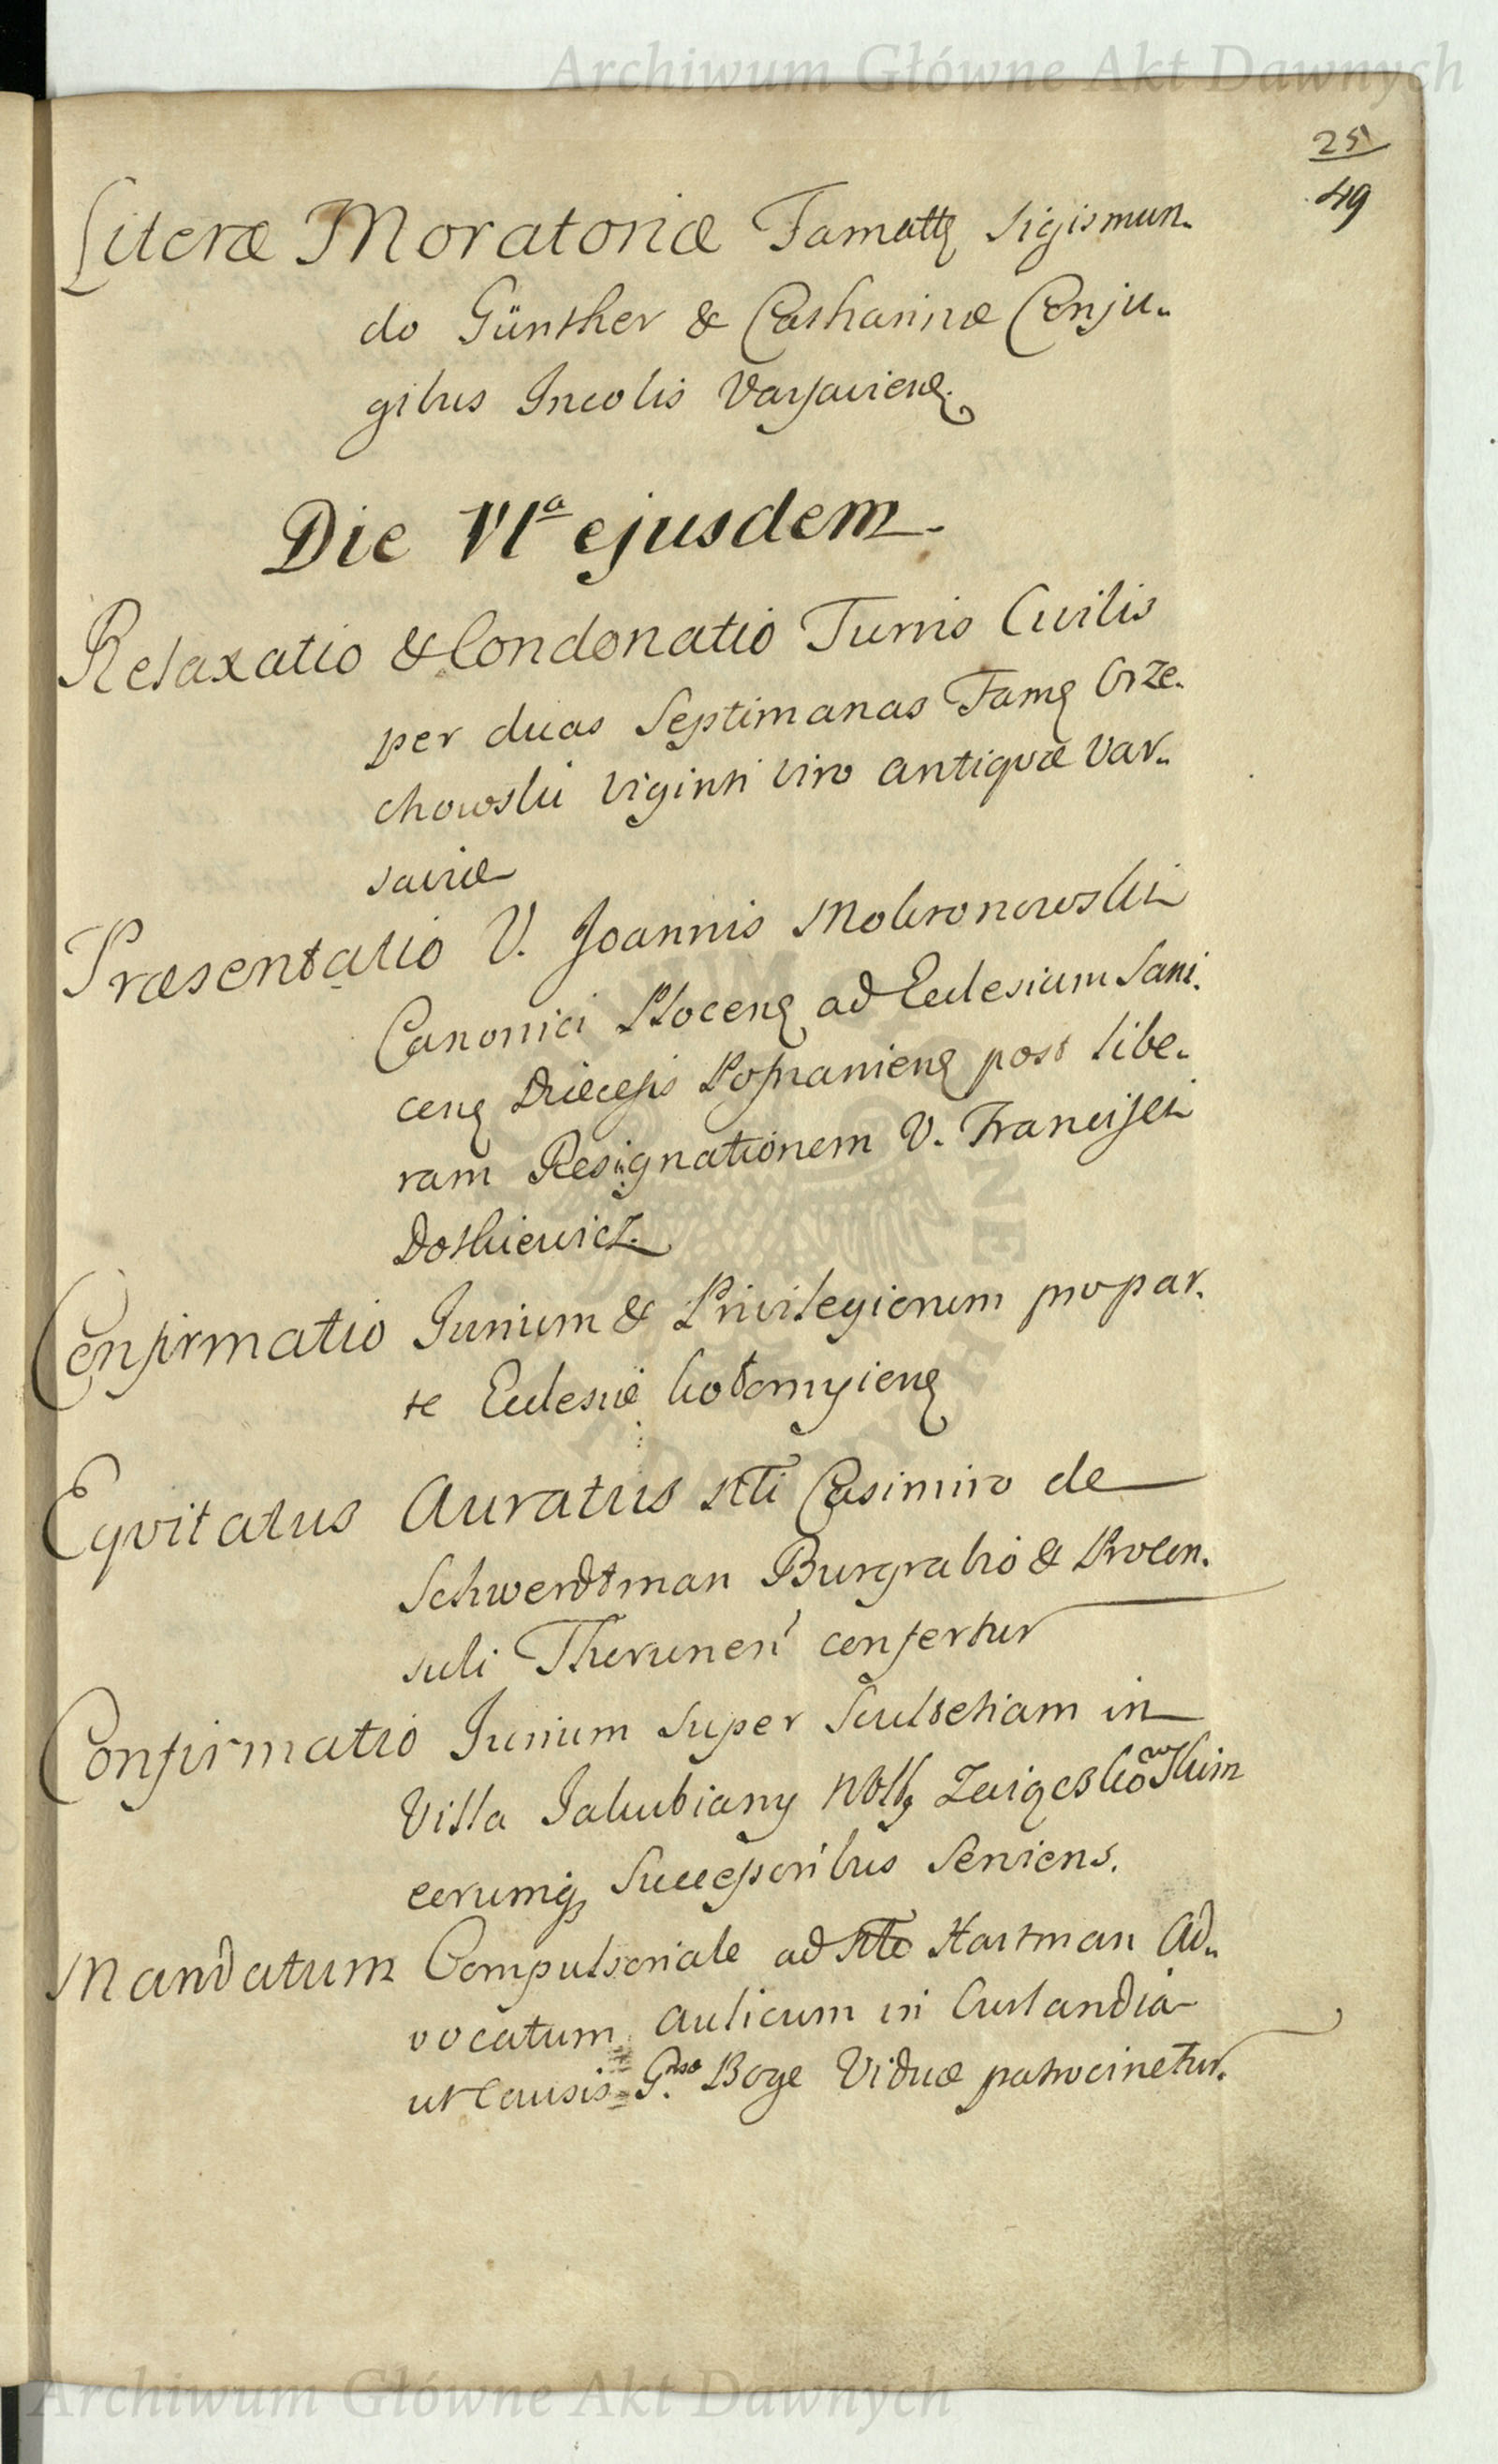 Archiwum Główne Akt Dawnych
25
49
Literæ Moratoriæ Famattę Sigismun-
do Günther & Catharinæ Conju-
gibus Incolis Varsavienę.
Die VIª ejusdem.
Relaxatio & Condonatio Turris Civilis
per duas Septimanas Famę Orze-
chowski Viginti Viro antiquæ Var-
saviæ
Præsentatio V. Joannis Mokronowski
Canonici Plocenę ad Ecclesiam Sani-
cenę Diœcesis Posnanienę post libe-
ram Resignationem V. Francisci
Dotkiewicz.
Confirmatio Jurium & Privilegiorum pro par-
te Ecclesiæ Kołomyienę
Eqvitatus Auratus Ntti Casimiro de
Schwerdtman Burgrabio & Procon-
suli Thorunen confertur
Confirmatio Jurium super Scultetiam in
Villa Jakubiany Nbllę
eorumq; Successoribus Serviens.
Mandatum Compulsoriale ad Hartman Ad-
vocatum Aulicum in Curlandia
ut Causis G.nsæ Boye Viduæ patrocinetur.
Archiwum Główne Akt Dawnych